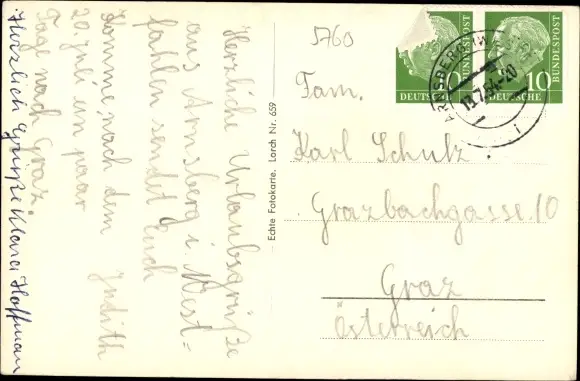 Herzliche Urlaubsgrüße
aus Arnsberg i. West=
fahlen sendet Euch
Judith
Komme nach dem
20. Juli ein paar
Tage nach Graz.
Herzlich Grüße Klara Hoffman
Echte Fotokarte. Lorch Nr. 659
5760
Fam.
Karl Schulz
Grazbachgasse 10
Graz
Österreich
10 BUNDESPOST
DEUTSCHE
10 BUNDESPOST
DEUTSCHE
ARNSBERG (W
.7.54.-20